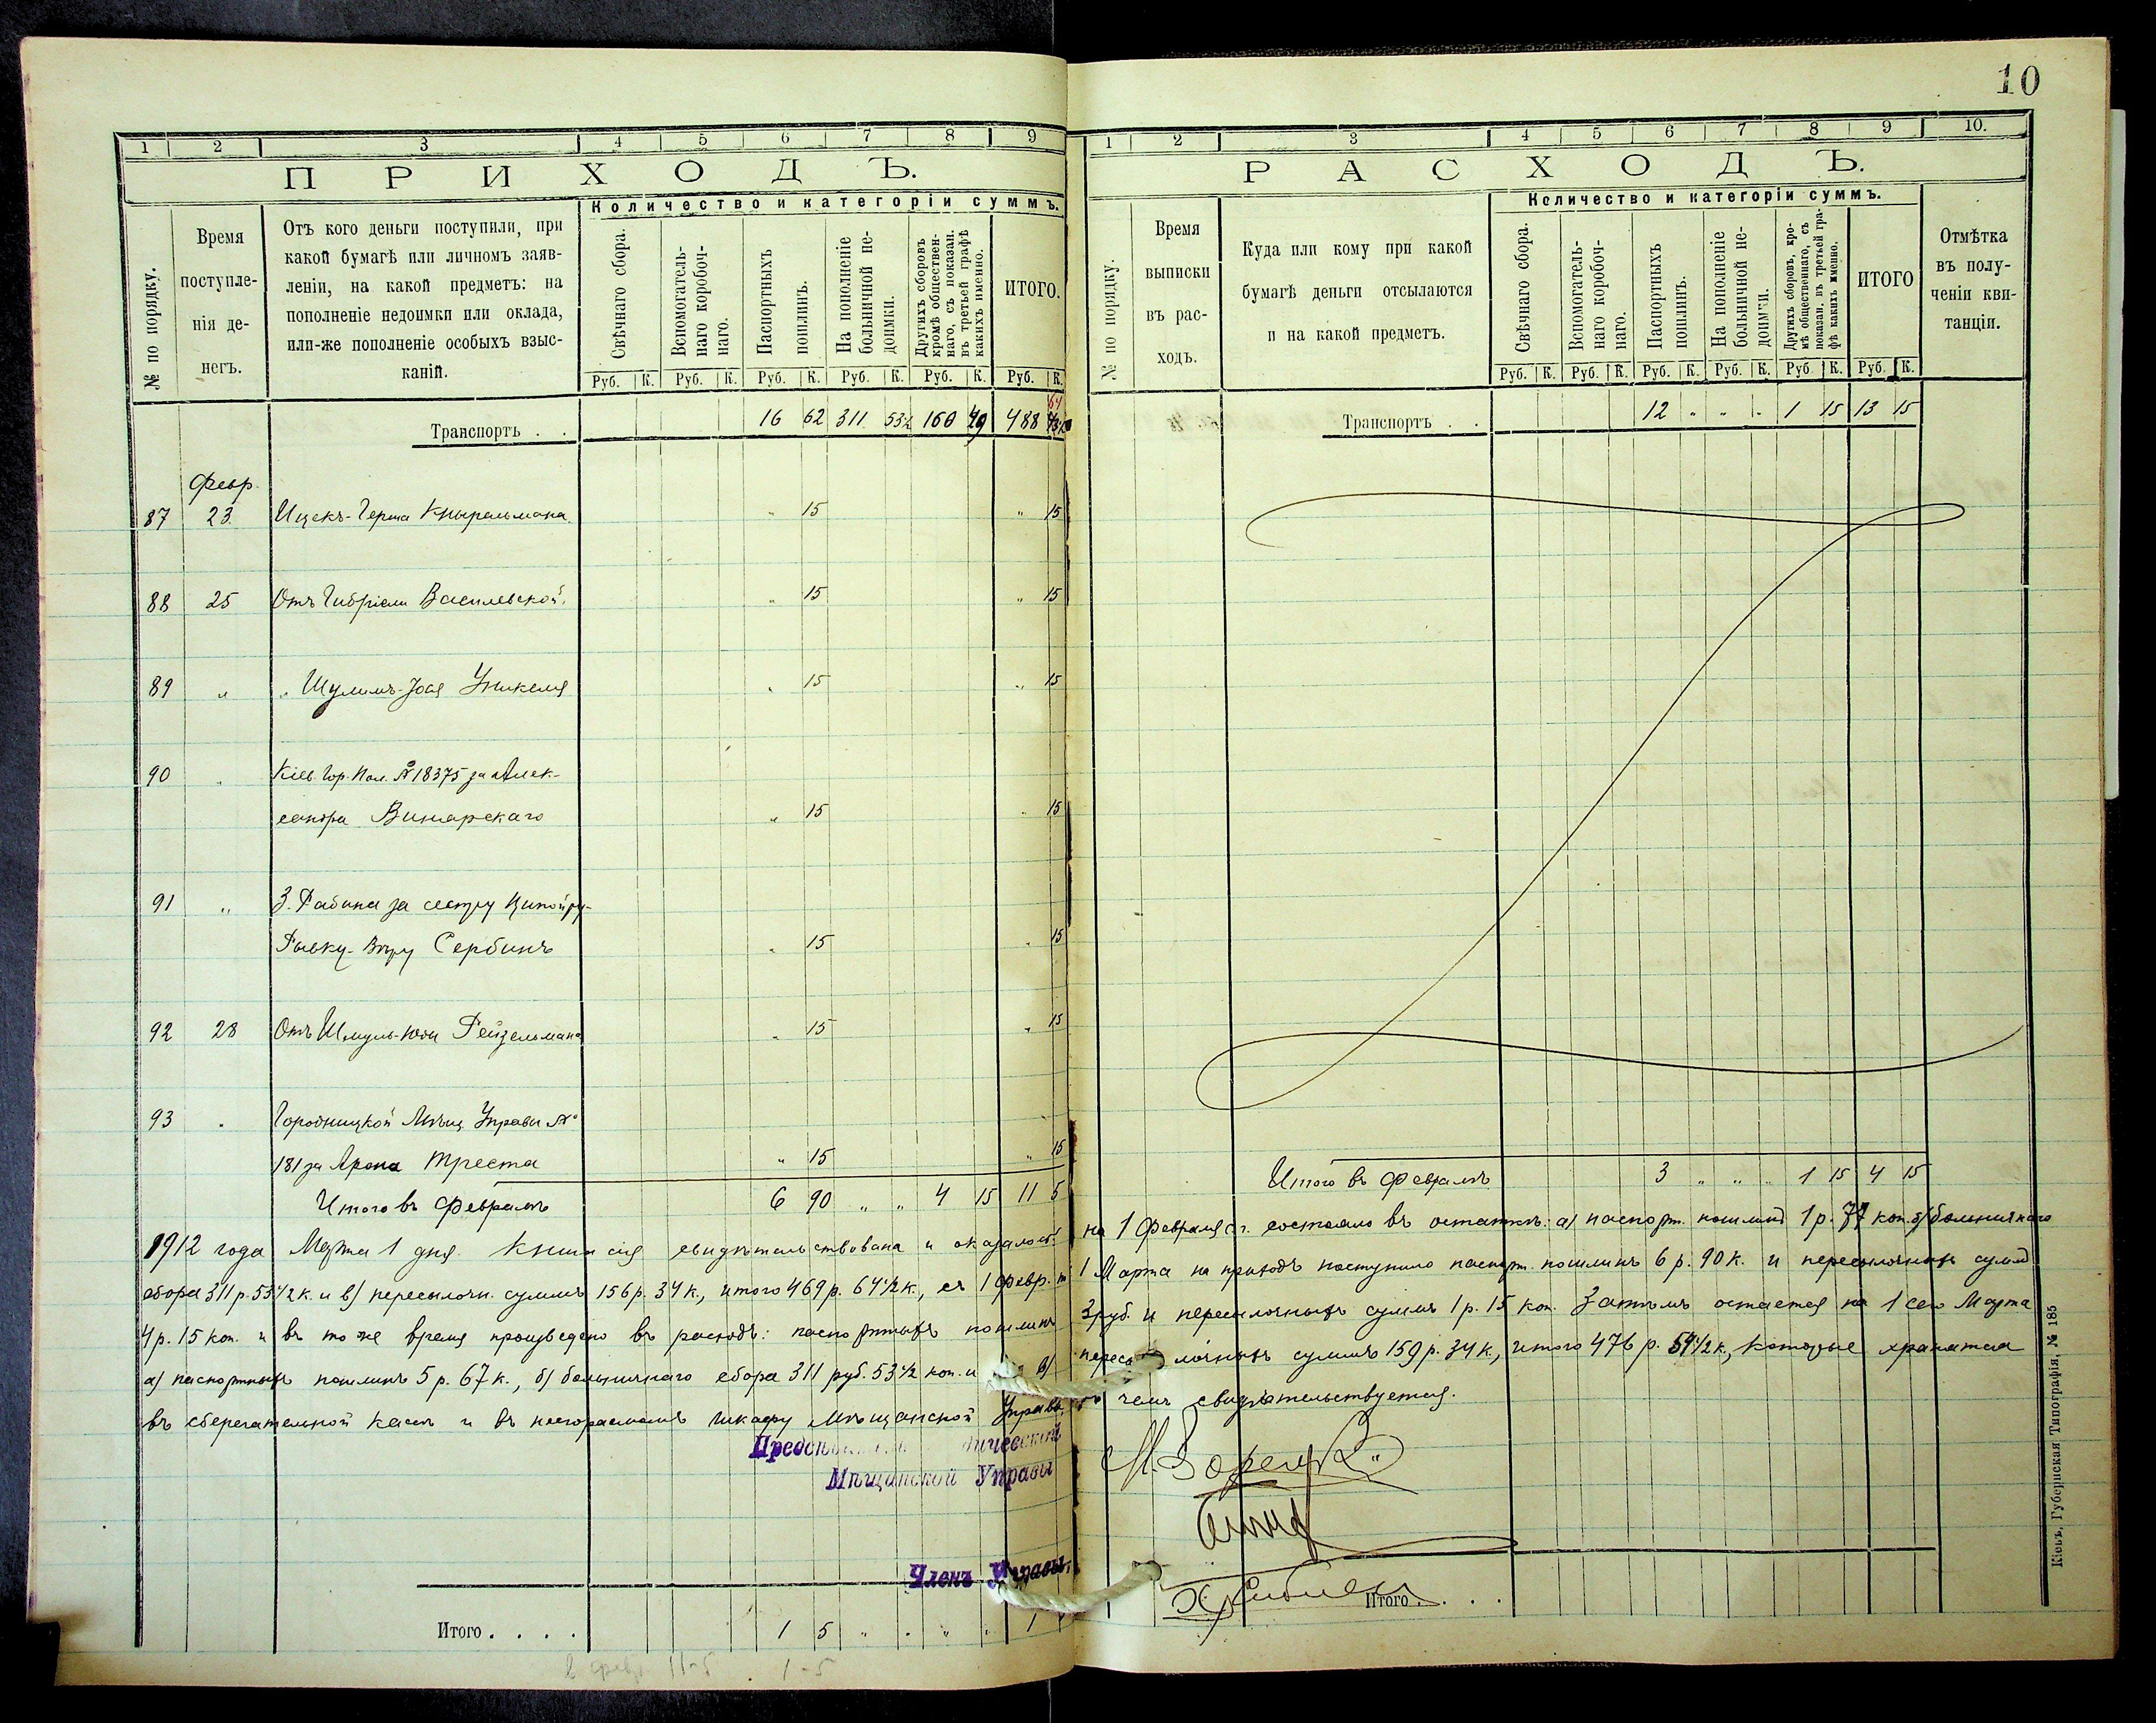 10
1 2 3 4 5 6 7 8 9
ПРИХОДЪ.
Количество и категоріи суммъ.
№ по порядку.
Время поступле-нія де-негъ.
Отъ кого деньги поступили, при
какой бумагѣ или личномъ заяв-
леніи, на какой предметъ: на
пополненіе недоимки или оклада,
или-же пополненіе особыхъ взыс-
каній.
Свѣчнаго сбора.
Вспомогатель-наго коробоч-наго.
Паспортныхъ пошлинъ.
На пополненіе больничной не-доимки.
Другихъ сборовъ кромѣ обществен-наго, съ показан. въ третьей графѣ какихъ именно.
ИТОГО.
Руб. К. Руб. К. Руб. К. Руб. К. Руб. К. Руб. К.
Транспортъ . . 16 62 311 53½ 160 49 488 64
Февр.
87 23 Ицекъ-Герша " 15 " 15
88 25 Отъ Василевской. " 15 " 15
89 " " Шулимъ- " 15 " 15
90 " Кіев. Гор. Пол. № 18375 за Алек-
сандра Винарскаго " 15 " 15
91 " З. Рабина за сестру
Рывку- Сербинъ " 15 " 15
92 28 Отъ Шмуль- Рейзельмана " 15 " 15
93 " Городницкой Мѣщ. Управы №
181 за Арона Треста " 15 " 15
Итого въ Февралѣ 6 90 " " 4 15 11 5
1912 года Марта 1 дня. Книга сія свидѣтельствована и оказалось:
сбора 311 р. 53½ к. и в) пересылочн. суммъ 156 р. 34 к., итого 469 р. 64½ к., съ 1 Февр. по
4 р. 15 коп. и въ то же время произведено въ расходъ: паспортныхъ пошлинъ
а) паспортныхъ пошлинъ 5 р. 67 к., б) больничнаго сбора 311 руб. 53½ коп. и в)
въ сберегательной кассѣ и въ несгораемомъ шкафу Мѣщанской Управы,
Мѣщанской Управы
Членъ Управы,
Итого . . . . 1 5 " " " " 1
11-5 1-5
1 2 3 4 5 6 7 8 9 10.
РАСХОДЪ.
Количество и категоріи суммъ.
№ по порядку.
Время выписки въ рас-ходъ.
Куда или кому при какой
бумагѣ деньги отсылаются
и на какой предметъ.
Свѣчнаго сбора.
Вспомогатель-наго коробоч-наго.
Паспортныхъ пошлинъ.
На пополненіе больничной не-доимки.
Другихъ сборовъ, кро-мѣ общественнаго, съ показан. въ третьей гра-фѣ какихъ именно.
ИТОГО
Отмѣтка
въ полу-
ченіи кви-
танціи.
Руб. К. Руб. К. Руб. К. Руб. К. Руб. К. Руб. К.
Транспортъ . . 12 " " " 1 15 13 15
Итого въ Февралѣ 3 " " " 1 15 4 15
на 1 Февраля с. г. состояло въ остаткѣ: а) паспорт. пошлинъ 1 р. 77 коп. б) больничнаго
1 Марта на приходъ поступило паспорт. пошлинъ 6 р. 90 к. и пересылочныхъ суммъ
3 руб. и пересылочныхъ суммъ 1 р. 15 коп. Затѣмъ остается на 1 сего Марта
пересылочныхъ суммъ 159 р. 34 к., итого 476 р. 54½ к., которые хранятся
въ чемъ свидѣтельствуется.
Итого . . . .
Кіевъ, Губернская Типографія, № 185